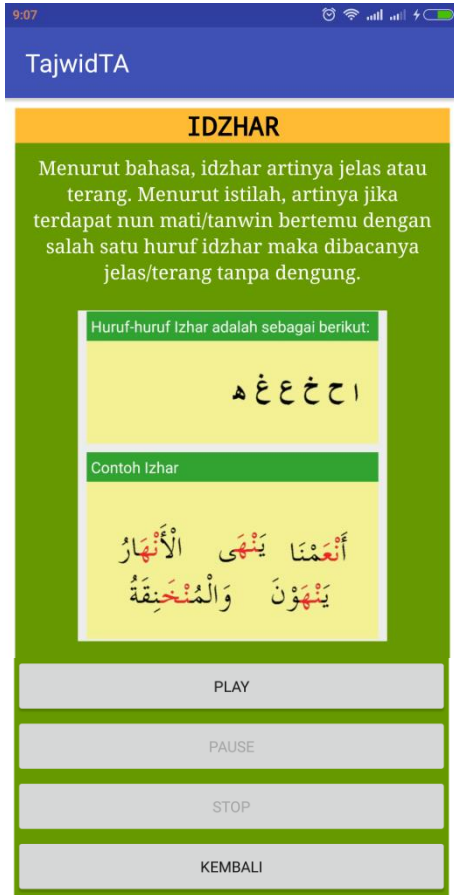 9:07
TajwidTA
IDZHAR
Menurut bahasa, idzhar artinya jelas atau
terang. Menurut istilah, artinya jika
terdapat nun mati/tanwin bertemu dengan
salah satu huruf idzhar maka dibacanya
jelas/terang tanpa dengung.
Huruf-huruf Izhar adalah sebagai berikut:
ا ح خ ع غ ه
Contoh Izhar
أَنْعَمْنَا يَنْهَى الْأَنْهَارُ
يَنْهَوْنَ وَالْمُنْخَنِقَةُ
PLAY
PAUSE
STOP
KEMBALI